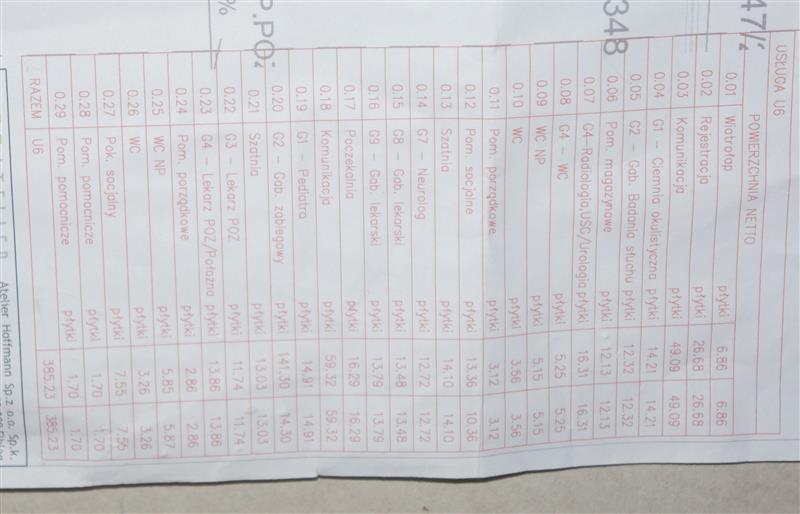 47½
348
P.PO
%
USŁUGA U6
POWIERZCHNIA NETTO
0.01 Wiatrołap płytki 6.86 6.86
0.02 Rejestracja płytki 26.68 26.68
0.03 Komunikacja płytki 49.09 49.09
0.04 G1 – Ciemnia okulistyczna płytki 14.21 14.21
0.05 G2 – Gab. Badania słuchu płytki 12.32 12.32
0.06 Pom. magazynowe płytki 12.13 12.13
0.07 G4–Radiologia,USG/Urologia płytki 16.31 16.31
0.08 G4 – WC płytki 5.25 5.25
0.09 WC NP płytki 5.15 5.15
0.10 WC płytki 3.56 3.56
0.11 Pom. porządkowe płytki 3.12 3.12
0.12 Pom. socjalne płytki 13.36 10.36
0.13 Szatnia płytki 14.10 14.10
0.14 G7 – Neurolog płytki 12.72 12.72
0.15 G8 – Gab. lekarski płytki 13.48 13.48
0.16 G9 – Gab. lekarski płytki 13.79 13.79
0.17 Poczekalnia płytki 16.29 16.29
0.18 Komunikacja płytki 59.32 59.32
0.19 G1 – Pediatra płytki 14.91 14.91
0.20 G2 – Gab. zabiegowy płytki 141.30 14.30
0.21 Szatnia płytki 13.03 13.03
0.22 G3 – Lekarz POZ płytki 11.74 11.74
0.23 G4 – Lekarz POZ/Położna płytki 13.86 13.86
0.24 Pom. porządkowe płytki 2.86 2.86
0.25 WC NP płytki 5.85 5.87
0.26 WC płytki 3.26 3.26
0.27 Pok. socjalny płytki 7.55 7.55
0.28 Pom. pomocnicze płytki 1.70 1.70
0.29 Pom. pomocnicze płytki 1.70 1.70
RAZEM U6 385.23 385.23
Atelier Hoffmann Sp.z o.o. Sp.k.